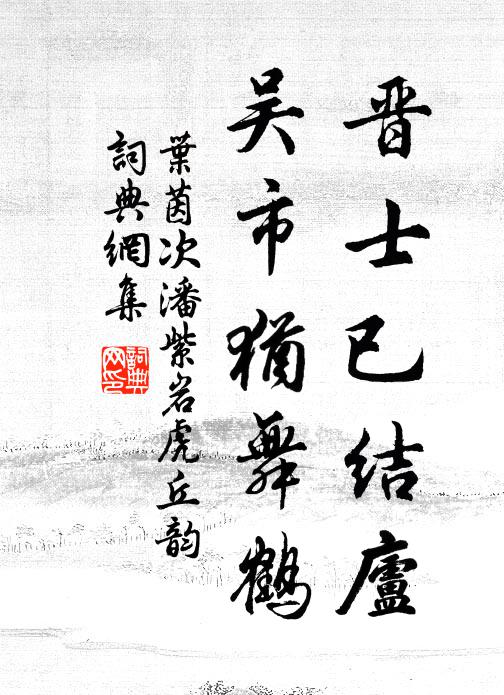 晋士已结廬
吴市猶舞鶴
葉茵次潘紫岩虎丘韵
詞典網集
詞典網印